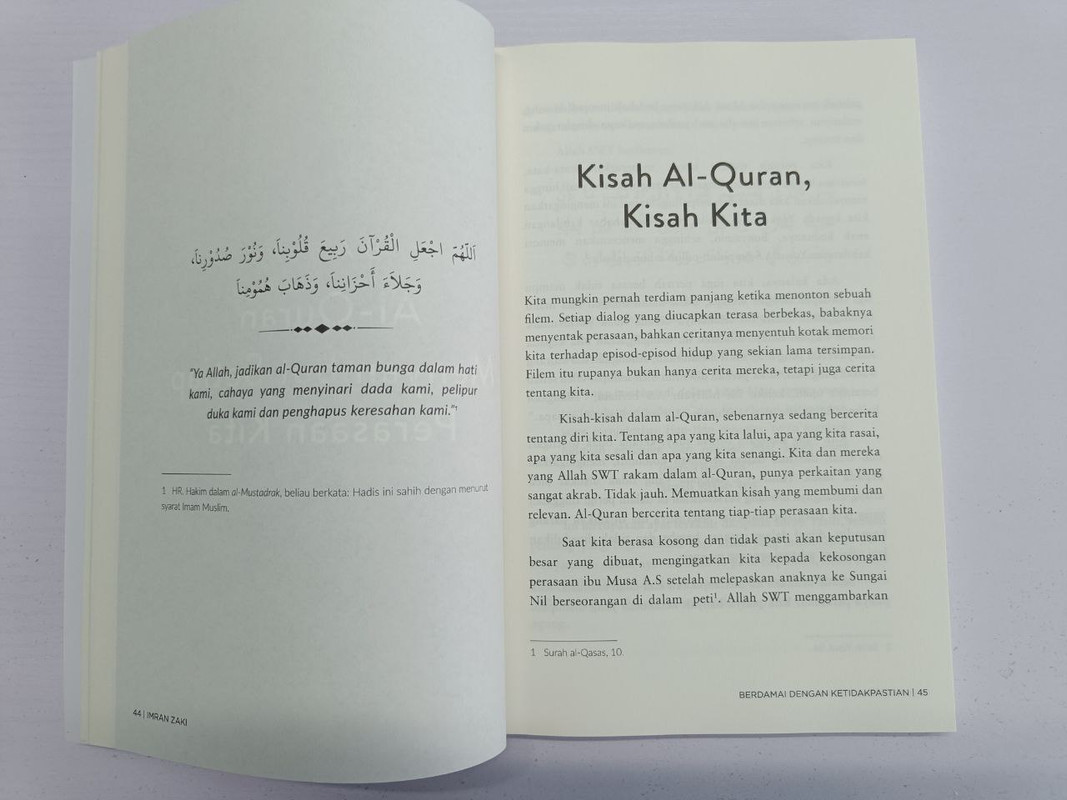 اَللّٰهُمَّ اجْعَلِ الْقُرْآنَ رَبِيعَ قُلُوْبِنَا، وَنُوْرَ صُدُوْرِنَا،
وَجَلَاءَ أَحْزَانِنَا، وَذَهَابَ هُمُوْمِنَا
"Ya Allah, jadikan al-Quran taman bunga dalam hati
kami, cahaya yang menyinari dada kami, pelipur
duka kami dan penghapus keresahan kami."¹
1 HR. Hakim dalam al-Mustadrak, beliau berkata: Hadis ini sahih dengan menurut
syarat Imam Muslim.
44 | IMRAN ZAKI
Kisah Al-Quran,
Kisah Kita
Kita mungkin pernah terdiam panjang ketika menonton sebuah
filem. Setiap dialog yang diucapkan terasa berbekas, babaknya
menyentak perasaan, bahkan ceritanya menyentuh kotak memori
kita terhadap episod-episod hidup yang sekian lama tersimpan.
Filem itu rupanya bukan hanya cerita mereka, tetapi juga cerita
tentang kita.
Kisah-kisah dalam al-Quran, sebenarnya sedang bercerita
tentang diri kita. Tentang apa yang kita lalui, apa yang kita rasai,
apa yang kita sesali dan apa yang kita senangi. Kita dan mereka
yang Allah SWT rakam dalam al-Quran, punya perkaitan yang
sangat akrab. Tidak jauh. Memuatkan kisah yang membumi dan
relevan. Al-Quran bercerita tentang tiap-tiap perasaan kita.
Saat kita berasa kosong dan tidak pasti akan keputusan
besar yang dibuat, mengingatkan kita kepada kekosongan
perasaan ibu Musa A.S setelah melepaskan anaknya ke Sungai
Nil berseorangan di dalam peti¹. Allah SWT menggambarkan
1 Surah al-Qasas, 10.
BERDAMAI DENGAN KETIDAKPASTIAN | 45